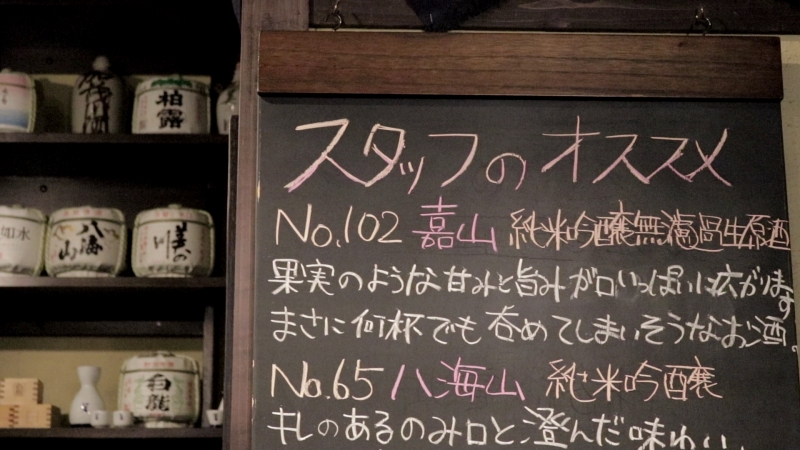 スタッフのオススメ
No.102 嘉山 純米吟醸無濾過生原酒
果実のような甘みと旨みが口いっぱいに広がります
まさに何杯でも呑めてしまいそうなお酒。
No.65 八海山 純米吟醸
キレのあるのみ口と澄んだ味わい
柏露
如水
八海山
美の川
白龍